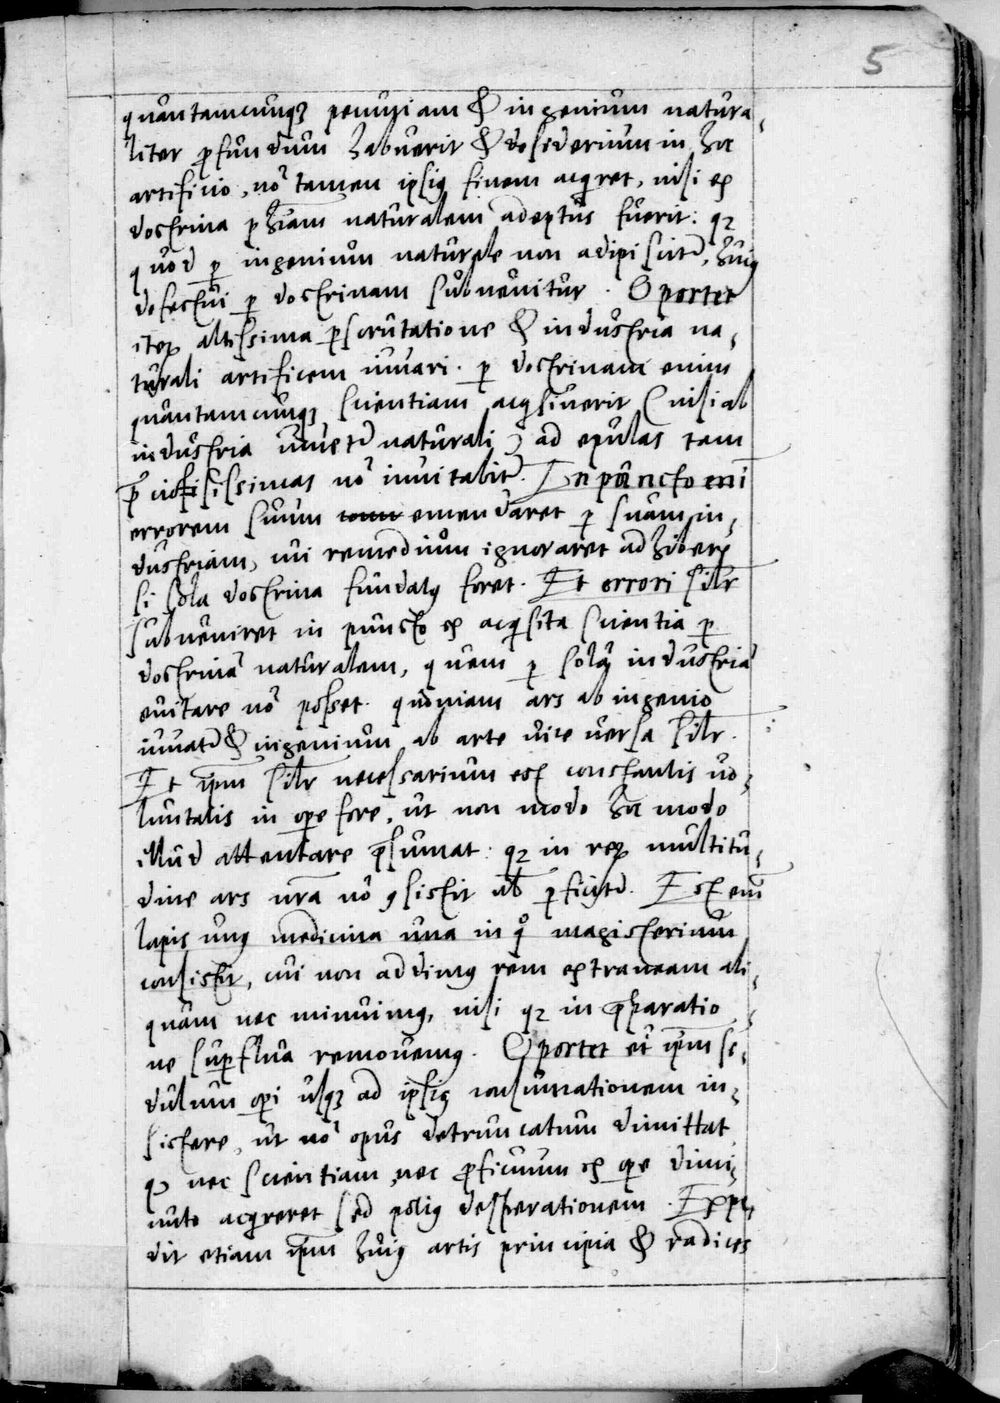 5
quantamcunqꝫ penuriam & ingenium natura-
liter ꝓfundum habuerit & desiderium in hoc
artificio, nō tamen ipsiꝰ finem acqret, nisi ex
doctrina phiam naturalem adeptus fuerit: qꝫ
quod ꝑ ingenium naturale non adipiscitr, huiꝰ
defectui ꝑ doctrinam subuenitur. Oportet
iteꝝ altissima ꝑscrutatione & industria na-
turali artificem iuuari. ꝑ doctrinam enim
quantamcunqꝫ scientiam acqsiuerit (nisi ab
industria iuuetr naturali) ad epulas tam
p̄ciosissimas nō inuitabitr. In puncto enī
errorem suum emendaret ꝑ suam in-
dustriam, cui remedium ignoraret adhibere
si sola doctrina fundatꝰ foret. Et errori silr
subueniret in puncto ex acqsita scientia ꝑ
doctrinā naturalem, quem ꝑ solā industriā
euitare nō posset. quoniam ars ab ingenio
iuuatr & ingenium ab arte vice versa silr.
Et ipm silr necessarium est constantis uo-
luntatis in opere fore, ut non modo hoc modo
illud attentare p̄sumat: qꝫ in reꝝ multitu-
dine ars nrā nō ꝯsistit nec ꝑficitr. Est enī
lapis unꝰ medicina una in qͦ magisterium
consistit, cui non addimꝰ rem extraneam ali-
quam nec minuimꝰ, nisi qꝫ in p̄paratio-
ne suꝑflua remouemꝰ. Oportet et ipm se-
dulum opi usqꝫ ad ipsiꝰ consumationem in-
sistere, ut nō opus detruncatum dimittat
qꝫ nec scientiam, nec ꝓficuum ex opere dimi-
nuto acqreret sed potiꝰ desperationem. Expe-
dit etiam ipm huiꝰ artis principia & radices